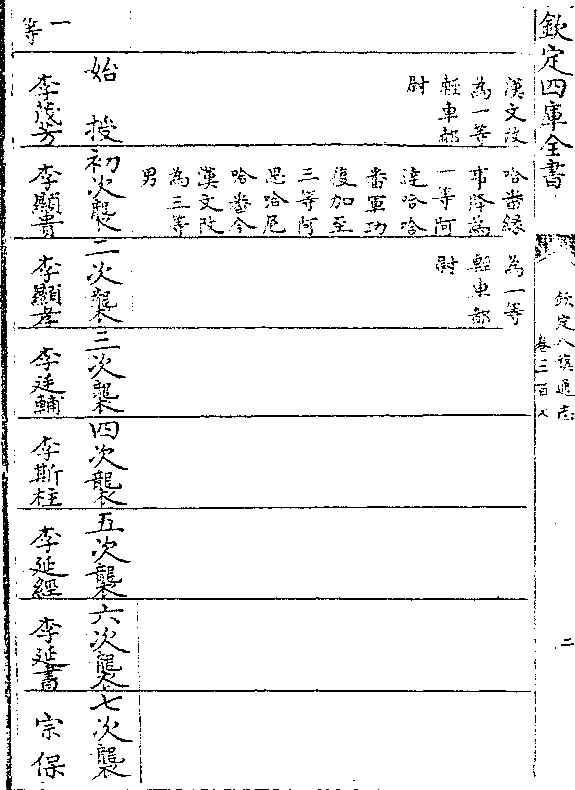 欽定四庫全書
欽定八旗通志
卷三百八
二
漢文改
為一等
輕車都
尉
哈畨緣
事降為
一等阿
達哈哈
畨軍功
復加至
三等阿
思哈尼
哈畨今
漢文改
為三等
男
為一等
輕車都
尉
始授
初次襲
二次襲
三次襲
四次襲
五次襲
六次襲
七次襲
一等
李茂芳
李顯貴
李顯孝
李廷輔
李斯柱
李延經
李延書
宗保